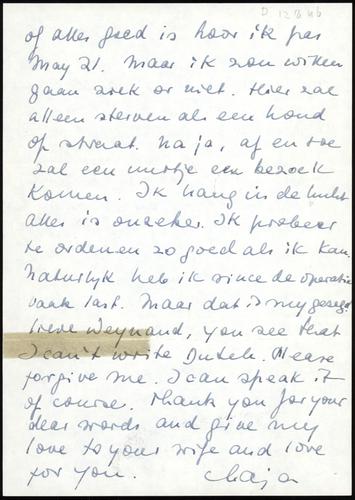 D 1286b
of alles goed is hoor ik pas
May 21. Maar ik zou willen
gaan zoek or niet. Hier zal
alleen sterven als een hond
op straat. Na ja, af en toe
zal een nurtje een bezoek
komen. Ik hang in de lucht
alles is onzeker. Ik probeer
te ordenen zo goed als ik kan.
Naturlyk heb ik since de operatie
vaak last. Maar dat is my gezegd
lieve Weynand, you see that
I can't write Dutch. Please
forgive me. I can speak it
of course. Thank you for your
dear words and give my
love to your wife and love
for you. Chaja